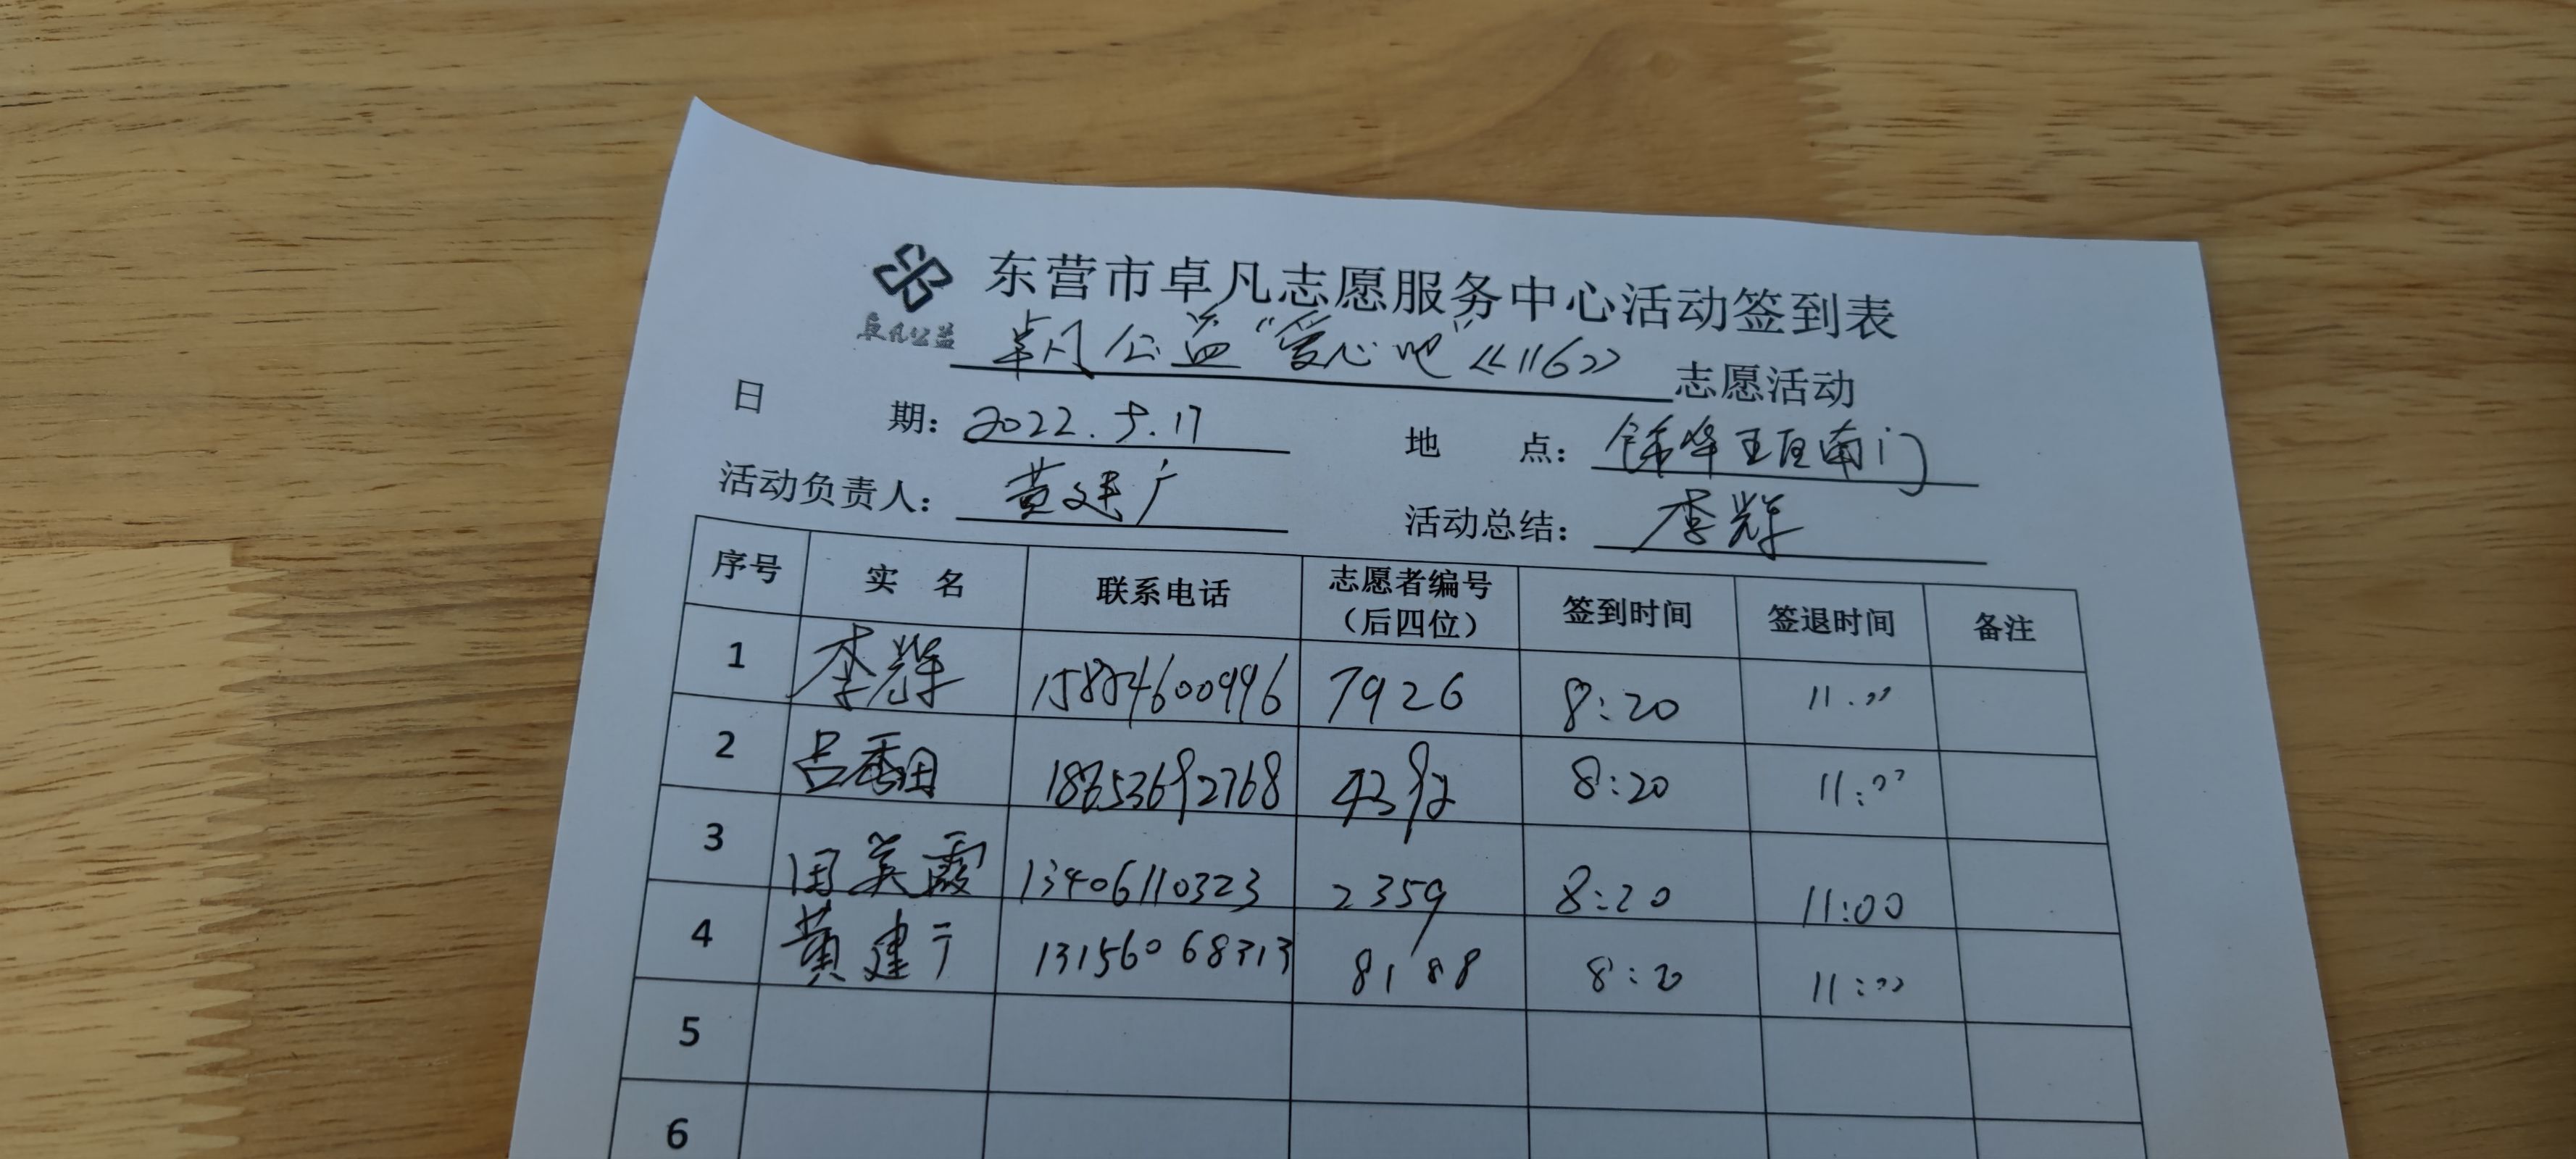 东营市卓凡志愿服务中心活动签到表
卓凡公益
卓凡公益"爱心吧"《116》志愿活动
日期：2022.5.17 地点：南门
活动负责人：黄建广 活动总结：李辉
序号 实名 联系电话 志愿者编号（后四位） 签到时间 签退时间 备注
1 李辉 15854600996 7926 8:20 11:00
2 吕秀田 4392 8:20 11:00
3 田英霞 13406110323 2359 8:20 11:00
4 黄建广 13156068313 8188 8:20 11:00
5
6